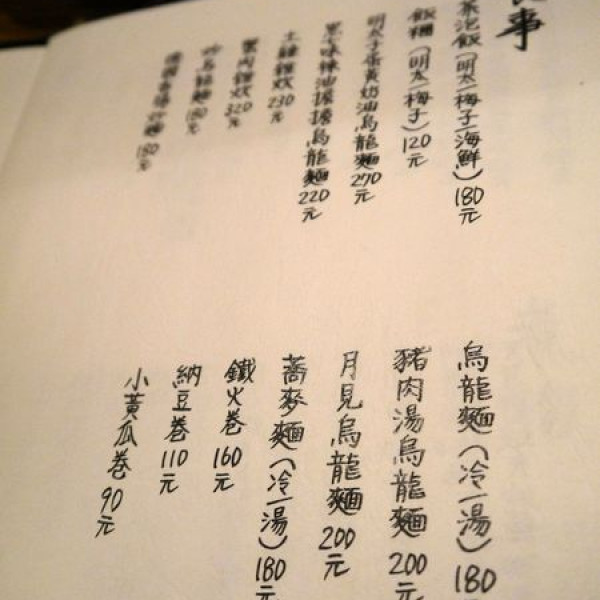 事
茶泡飯(明太/梅子/海鮮)180元
飯糰(明太/梅子)120元
明太子蛋黃奶油烏龍麵270元
黑七味辣油擔擔烏龍麵220元
土雞雜炊230元
蟹肉雜炊320元
炒烏龍麵180元
炒麵180元
烏龍麵(冷/湯)180
豬肉湯烏龍麵200元
月見烏龍麵200元
蕎麥麵(冷/湯)180元
鐵火卷160元
納豆卷110元
小黃瓜卷90元